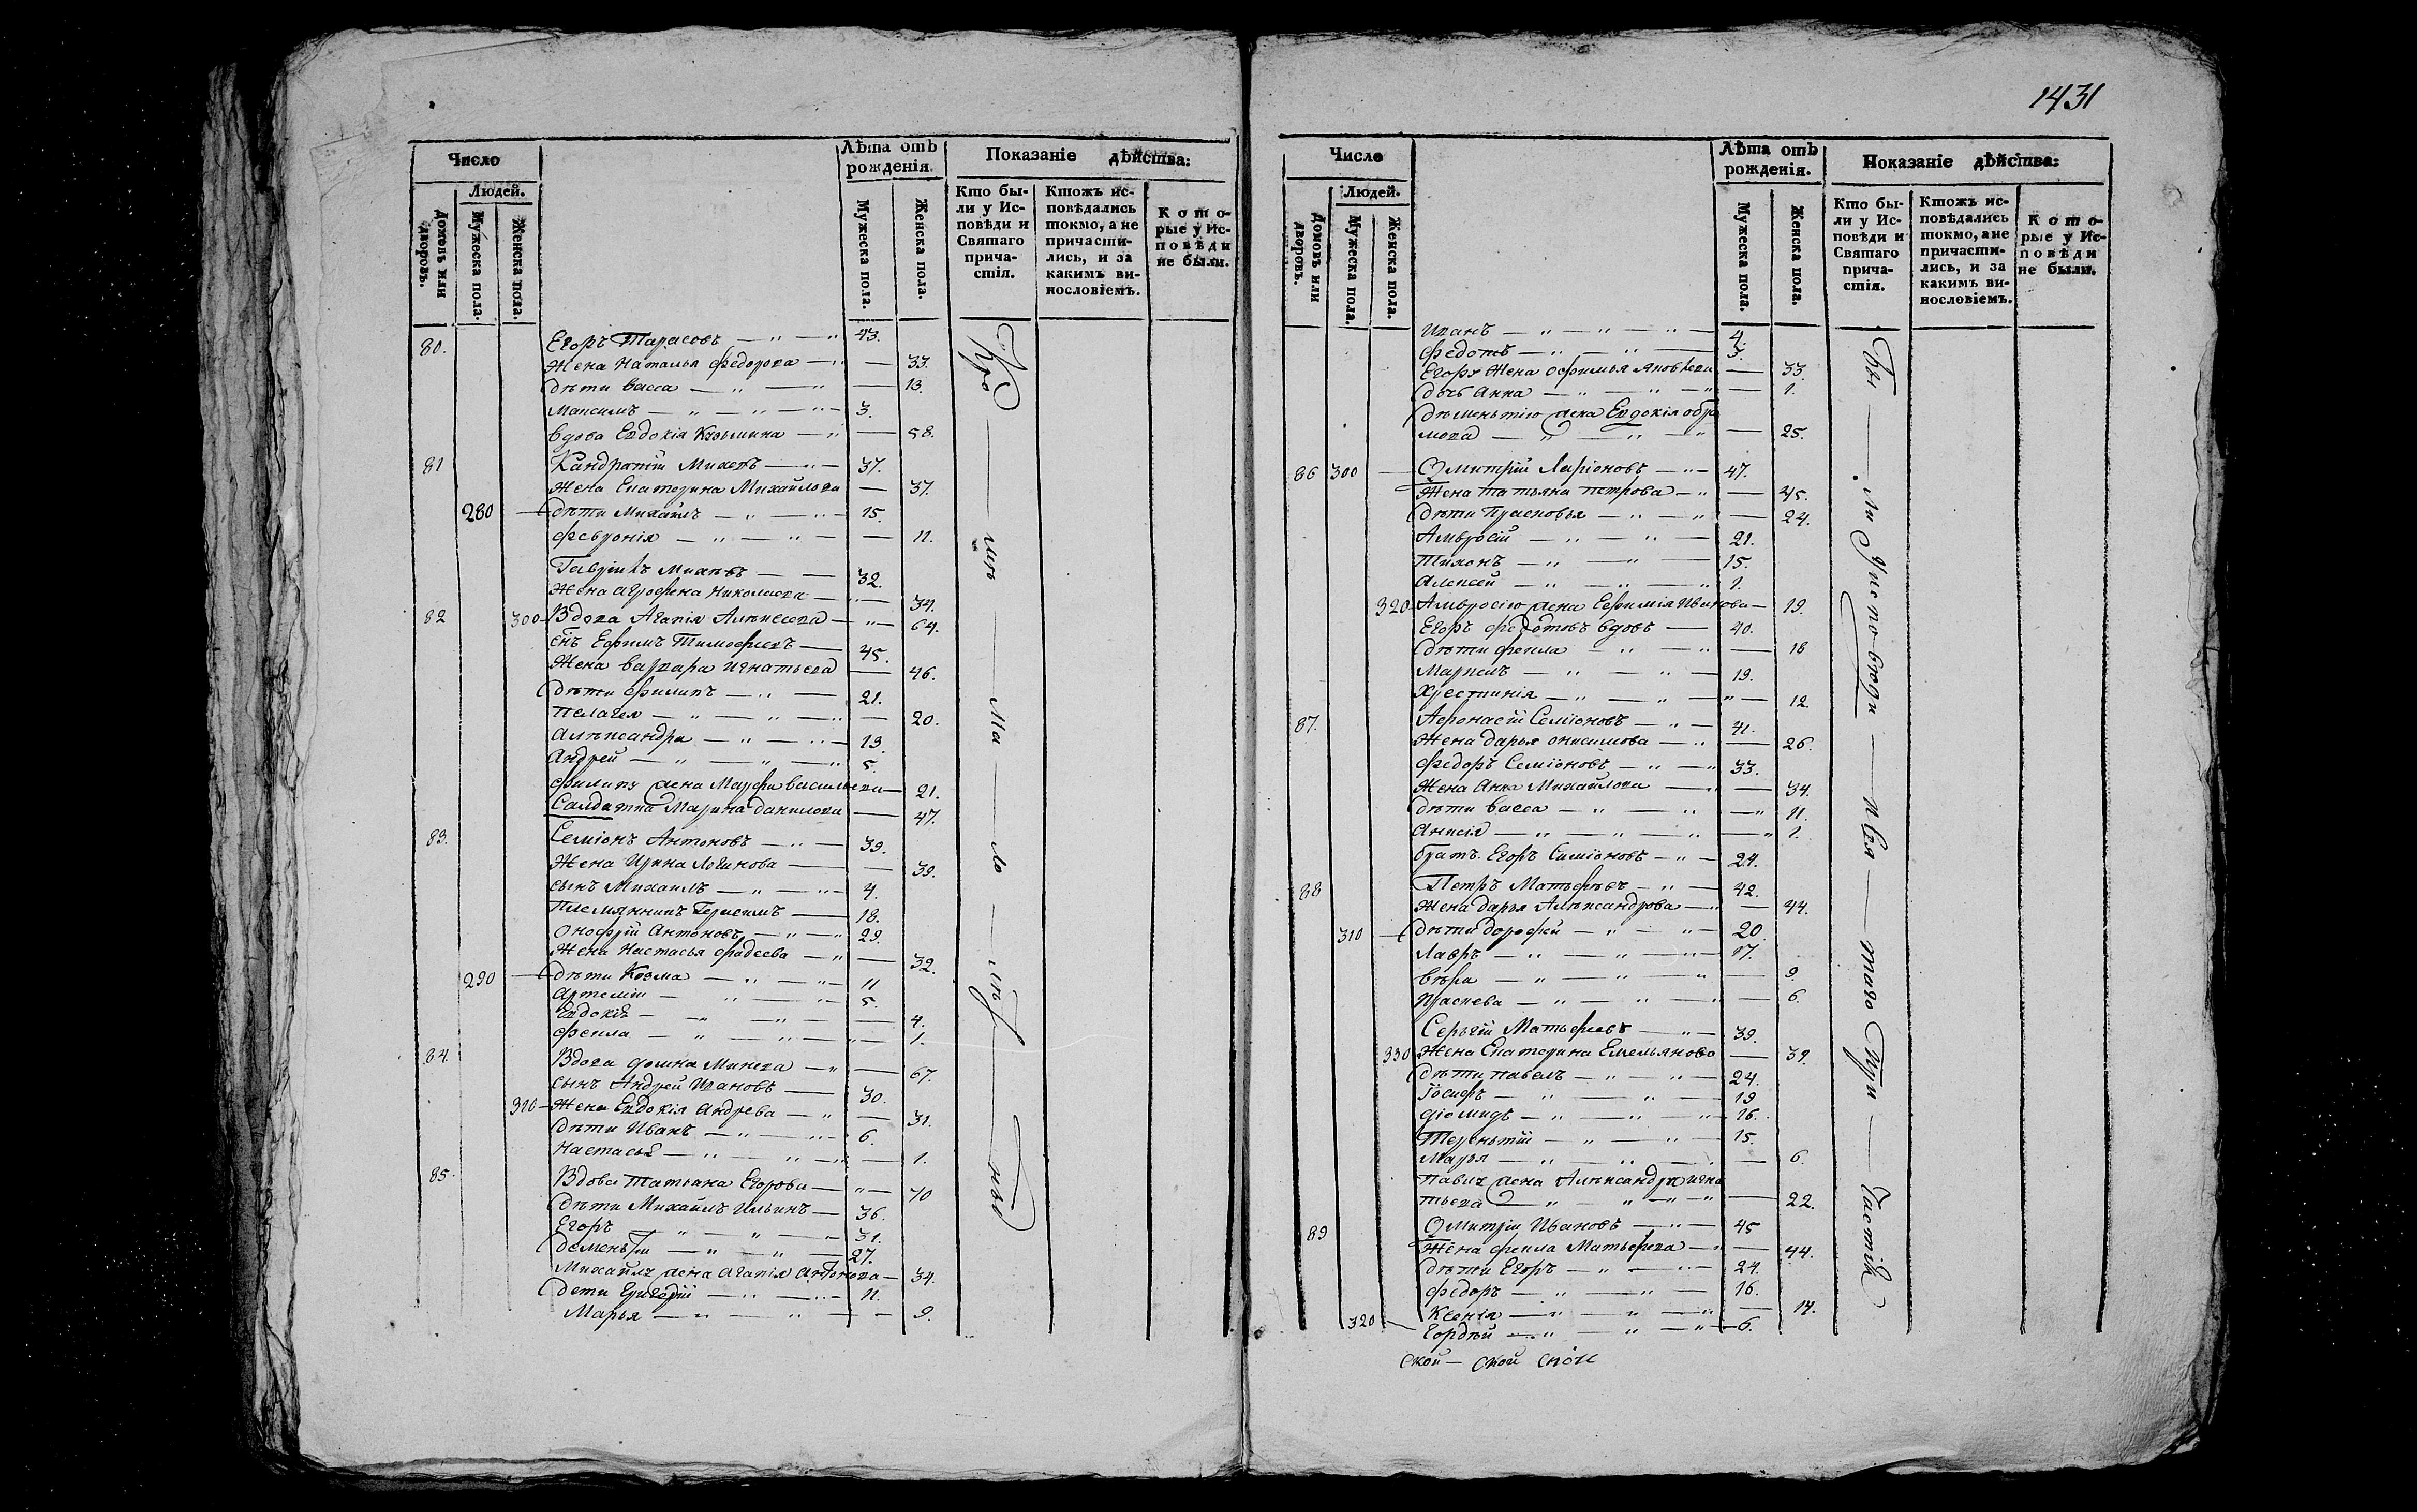 1431
Число
Людей.
Домовъ или дворовъ.
Мужеска пола.
Женска пола.
Лѣта отъ рожденія.
Мужеска пола.
Женска пола.
Показаніе дѣйства:
Кто бы-
ли у Ис-
повѣди и
Святаго
прича-
стія.
Ктожъ ис-
повѣдались
токмо, а не
причасти-
лись, и за
какимъ ви-
нословіемъ.
Кото-
рые у Ис-
повѣди
не были.
80. Егоръ Тарасовъ 43.
Жена Наталья Федорова 33.
Дѣти Васса 13.
Максимъ 3.
Вдова Евдокія Козьмина 58.
81 Кандратій Михеевъ 37.
Жена Екатерина Михайлова 37.
280 Дѣти Михайлъ 15.
Февронія 11.
Гавріилъ Михеевъ 32.
Жена Агрофена Николаева 34.
82 300 Вдова Агапія Алексеева 64.
Сынъ Ефимъ Тимофеевъ 45.
Жена Варвара Игнатьева 46.
Дѣти Филипъ 21.
Пелагея 20.
Алѣксандра 13.
Андрей 5.
Филипу жена Марфа Васильева 21.
Салдатка Марина Данилова 47.
83. Семіонъ Антоновъ 39.
Жена Ирина Логинова 39.
Сынъ Михаилъ 4.
Племянникъ Герасимъ 18.
Онофрій Антоновъ 29.
Жена Настасья Фадеева 32.
290 Дѣти Козма 11
Артемій 5.
Евдокія 4.
Фекла 1.
84. Вдова Домна Михеева 67.
Сынъ Андрей Ивановъ 30.
310 Жена Евдокія Андрева 31.
Дѣти Иванъ 6.
Настасья 1.
85. Вдова Татіана Егорова 70
Дѣти Михайлъ Ильинъ 36.
Егоръ 31.
Деменьтій 27.
Михайлу жена Агапія Антонова 34.
Дети Григорій 11.
Марья 9.
Число
Людей.
Домовъ или дворовъ.
Мужеска пола.
Женска пола.
Лѣта отъ рожденія.
Мужеска пола.
Женска пола.
Показаніе дѣйства:
Кто бы-
ли у Ис-
повѣди и
Святаго
прича-
стія.
Ктожъ ис-
повѣдались
токмо, а не
причасти-
лись, и за
какимъ ви-
нословіемъ.
Кото-
рые у Ис-
повѣди
не были.
Иванъ 4.
Федотъ 3.
Егору Жена Офимья Яковлева 33.
Дочь Анна 1.
Дѣменьтію жена Евдокія
25.
86 300 Дмитрій Ларіоновъ 47.
Жена Татьяна Петрова 45.
Дѣти Прасковья 24.
Амвросій 21.
Тихонъ 15.
Алексей 1.
320 Амвросію жена Ефимія Иванова 19.
Егоръ Федотовъ вдовъ 40.
Дѣти Фекла 18
Маркелъ 19.
Хрестинія 12
87. Афонасій Семіоновъ 41.
Жена Дарья Онисимова 26.
Федоръ Семіоновъ 33.
Жена Анна Михайлова 34.
Дѣти Васса 11.
Анисія 1.
братъ Егоръ Симіоновъ 24.
88 Петръ Матьфѣевъ 42.
Жена Дарья Алѣксандрова 44.
310 Дѣти Дорофей 20.
Лавръ 17.
Вѣра 9.
Праскева 6.
Сергій Матьфеевъ 39.
330 Жена Екатерина Емельянова 39.
Дѣти Павелъ 24.
Іосифъ 19
Діомидъ 16.
Тереньтій 15.
Марья 6.
Павлу жена Алѣксандра Игна
тьева 22.
89 Дмитрій Ивановъ 45
Жена Фекла Матьфеева 44.
Дѣти Егоръ 24.
Федоръ 16.
Ксенія 14.
320 Гордѣй 6.